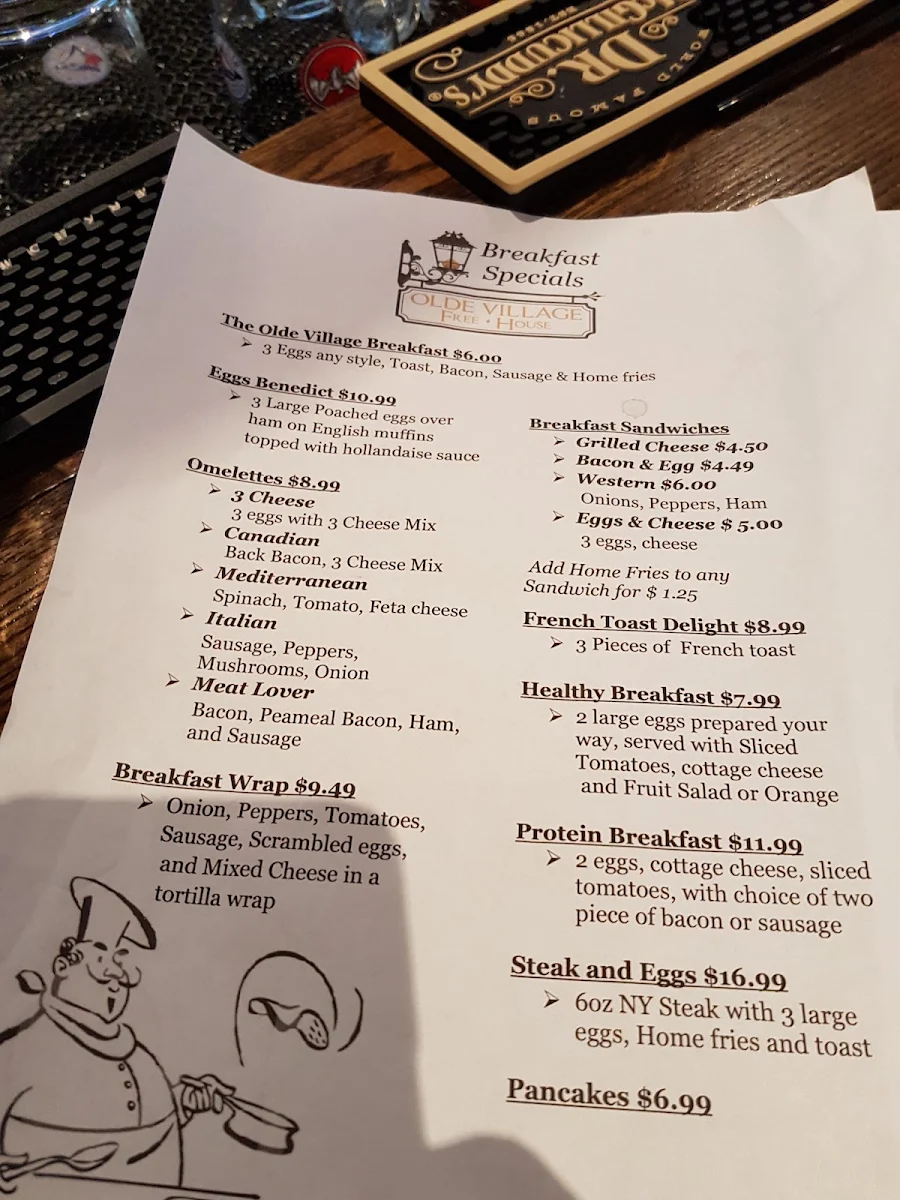 DR.
McGILLICUDDY'S®
WORLD FAMOUS
Breakfast
Specials
OLDE VILLAGE
FREE • HOUSE
The Olde Village Breakfast $6.00
➢ 3 Eggs any style, Toast, Bacon, Sausage & Home fries
Eggs Benedict $10.99
➢ 3 Large Poached eggs over
ham on English muffins
topped with hollandaise sauce
Omelettes $8.99
➢ 3 Cheese
3 eggs with 3 Cheese Mix
➢ Canadian
Back Bacon, 3 Cheese Mix
➢ Mediterranean
Spinach, Tomato, Feta cheese
➢ Italian
Sausage, Peppers,
Mushrooms, Onion
➢ Meat Lover
Bacon, Peameal Bacon, Ham,
and Sausage
Breakfast Wrap $9.49
➢ Onion, Peppers, Tomatoes,
Sausage, Scrambled eggs,
and Mixed Cheese in a
tortilla wrap
Breakfast Sandwiches
➢ Grilled Cheese $4.50
➢ Bacon & Egg $4.49
➢ Western $6.00
Onions, Peppers, Ham
➢ Eggs & Cheese $ 5.00
3 eggs, cheese
Add Home Fries to any
Sandwich for $ 1.25
French Toast Delight $8.99
➢ 3 Pieces of French toast
Healthy Breakfast $7.99
➢ 2 large eggs prepared your
way, served with Sliced
Tomatoes, cottage cheese
and Fruit Salad or Orange
Protein Breakfast $11.99
➢ 2 eggs, cottage cheese, sliced
tomatoes, with choice of two
piece of bacon or sausage
Steak and Eggs $16.99
➢ 6oz NY Steak with 3 large
eggs, Home fries and toast
Pancakes $6.99